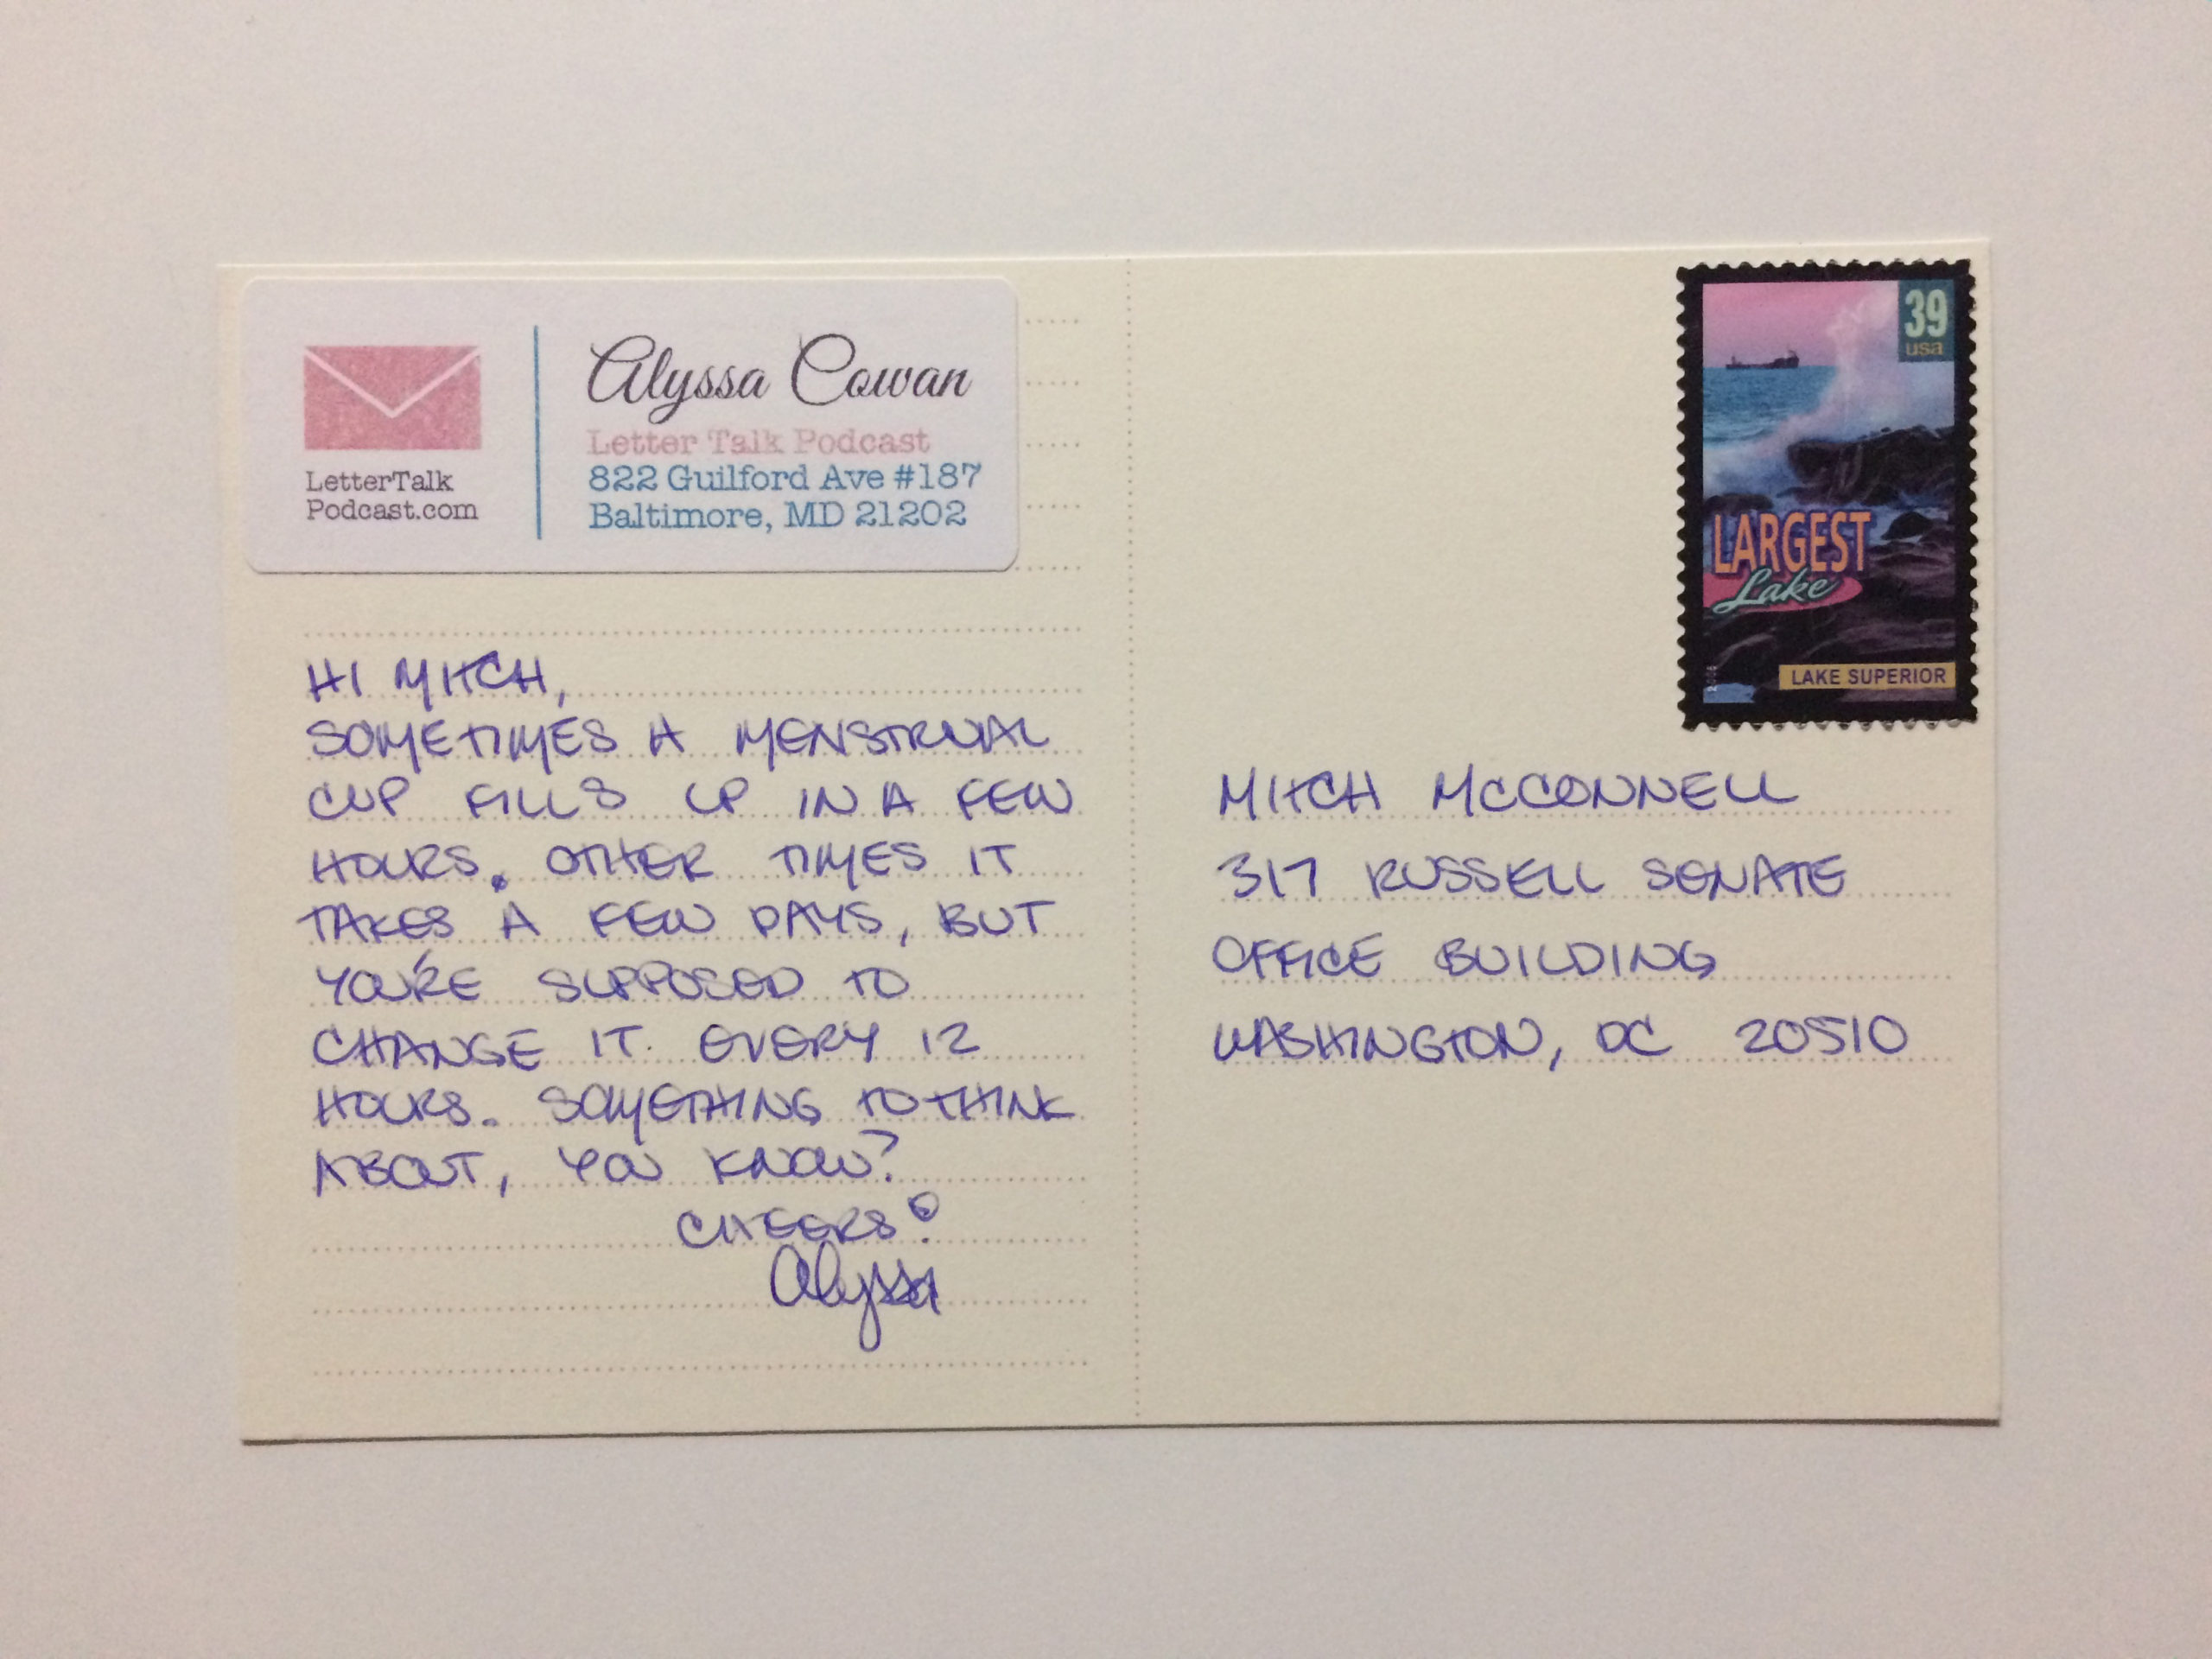 Alyssa Cowan
Letter Talk Podcast
822 Guilford Ave #187
Baltimore, MD 21202
LetterTalk
Podcast.com
HI MITCH,
SOMETIMES A MENSTRUAL
CUP FILLS UP IN A FEW
HOURS. OTHER TIMES IT
TAKES A FEW DAYS, BUT
YOU'RE SUPPOSED TO
CHANGE IT EVERY 12
HOURS. SOMETHING TO THINK
ABOUT, YOU KNOW?
CHEERS!
Alyssa
39
usa
LARGEST
Lake
LAKE SUPERIOR
2006
MITCH MCCONNELL
317 RUSSELL SENATE
OFFICE BUILDING
WASHINGTON, DC 20510